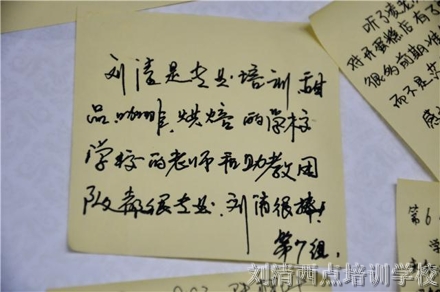 刘清是专业培训甜
品.咖啡,烘焙的学校
学校的老师和助教团
队都很专业.刘清很棒!
第7组.
听了
对开蛋糕店有了
很多前期准
而不是
感
第6.
学
刘清西点培训学校